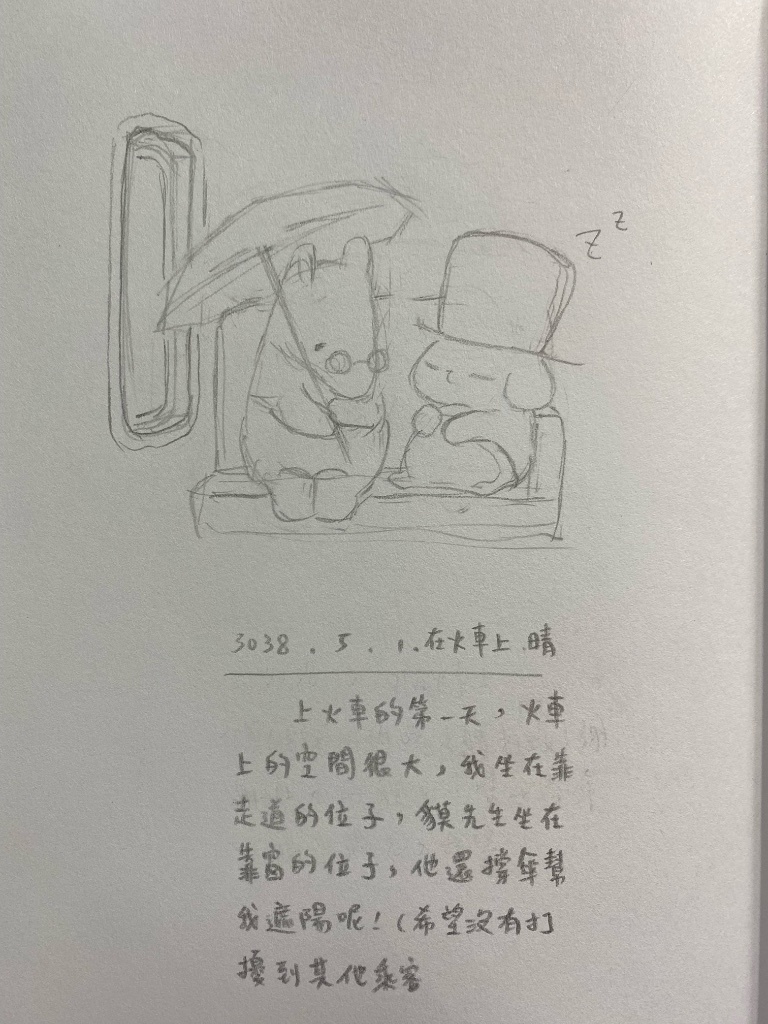 z z
3038.5.1.在火車上.晴
上火車的第一天，火車
上的空間很大，我坐在靠
走道的位子，貘先生坐在
靠窗的位子，他還撐傘幫
我遮陽呢！（希望沒有打
擾到其他乘客